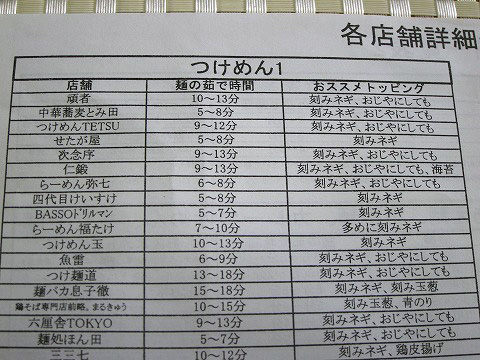 各店舗詳細
つけめん1
店舗 麺の茹で時間 おススメトッピング
頑者 10～13分 刻みネギ、おじやにしても
中華蕎麦とみ田 8～13分 刻みネギ、おじやにしても
つけめんTETSU 9～12分 刻みネギ、おじやにしても
せたが屋 5～8分 刻みネギ
次念序 9～13分 刻みネギ、おじやにしても
仁鍛 9～13分 刻みネギ、おじやにしても、海苔
らーめん弥七 6～8分 刻みネギ、おじやにしても
四代目けいすけ 5～8分 刻みネギ
BASSOﾄﾞﾘﾙマン 5～7分 刻みネギ
らーめん福たけ 7～10分 多めに刻みネギ
つけめん玉 10～13分 刻みネギ
魚雷 6～9分 刻みネギ、おじやにしても
つけ麺道 13～18分 刻みネギ、おじやにしても
麺バカ息子徹 15～18分 刻みネギ、刻み玉葱
鶏そば専門店前略。まるきゅう 10～15分 刻み玉葱、青のり
六厘舎TOKYO 9～13分 刻みネギ、おじやにしても
麺処ほん田 5～7分 刻みネギ、おじやにしても
三三七 10～12分 刻みネギ、鶏皮揚げ